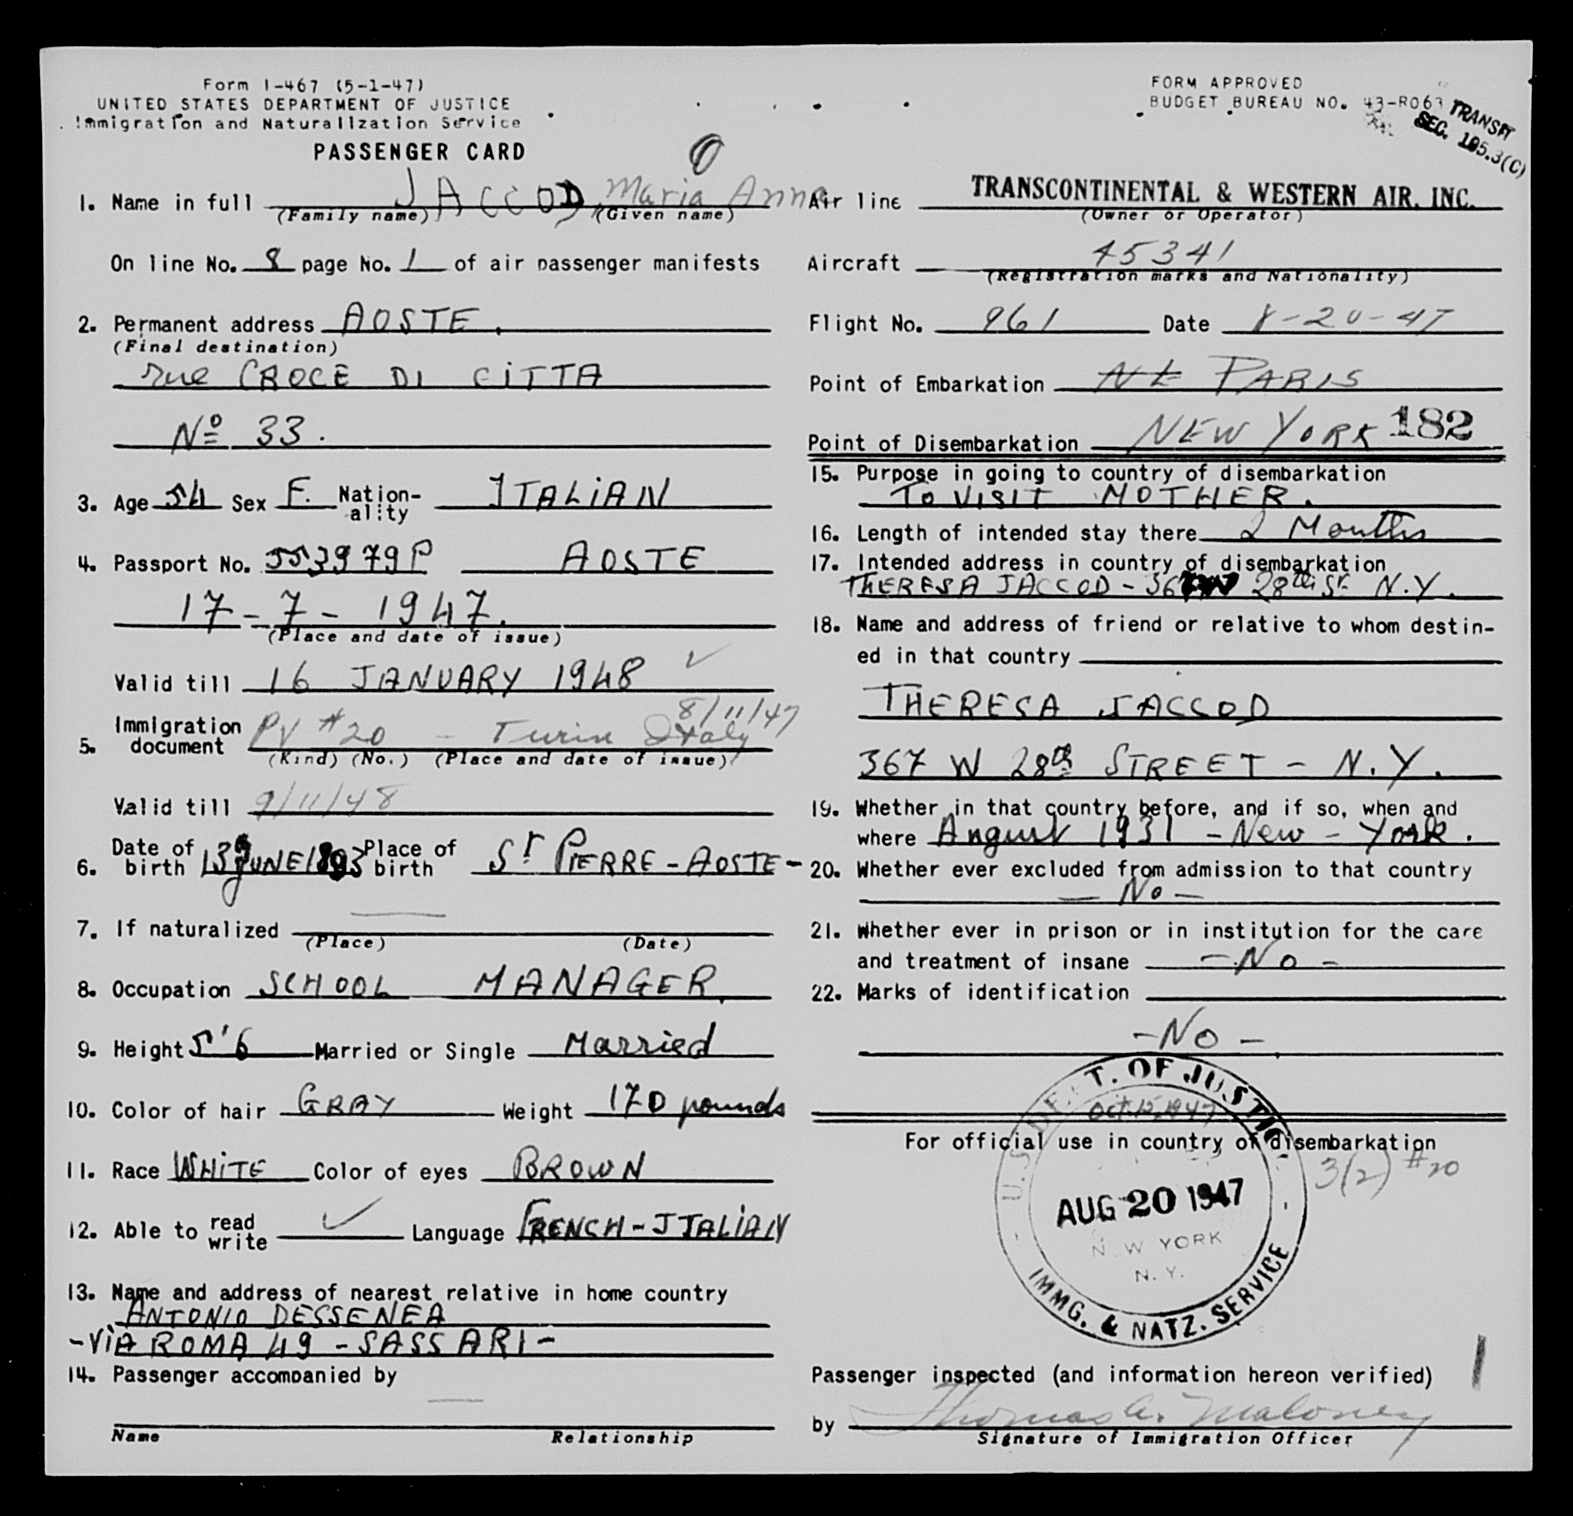 Form I-467 (5-1-47)
UNITED STATES DEPARTMENT OF JUSTICE
Immigration and Naturalization Service
PASSENGER CARD
FORM APPROVED
BUDGET BUREAU NO. 43-R063
TRANSIT
SEC. 195.3(C)
0
1. Name in full JACCOD, Maria Anna
(Family name) (Given name)
On line No. 8 page No. 1 of air passenger manifests
2. Permanent address AOSTE,
(Final destination)
rue CROCE DI CITTA
Nº 33.
3. Age 54 Sex F. Nation-ality ITALIAN
4. Passport No. 553979P AOSTE
17-7-1947.
(Place and date of issue)
Valid till 16 JANUARY 1948
8/11/47
5. Immigration document PV #20 - Turin Italy
(Kind) (No.) (Place and date of issue)
Valid till 9/11/48
6. Date of birth 13 JUNE 1893 Place of birth St PIERRE-AOSTE-
7. If naturalized
(Place) (Date)
8. Occupation SCHOOL MANAGER
9. Height 5'6 Married or Single Married
10. Color of hair GRAY Weight 170 pounds
11. Race WHITE Color of eyes BROWN
12. Able to read write ✓ Language FRENCH-ITALIAN
13. Name and address of nearest relative in home country
ANTONIO DESSENEA
-VIA ROMA 49 -SASSARI-
14. Passenger accompanied by
Name Relationship
Air line TRANSCONTINENTAL & WESTERN AIR, INC.
(Owner or Operator)
Aircraft 45341
(Registration marks and Nationality)
Flight No. 961 Date 8-20-47
Point of Embarkation PARIS
Point of Disembarkation NEW YORK 182
15. Purpose in going to country of disembarkation
TO VISIT MOTHER.
16. Length of intended stay there 2 Months
17. Intended address in country of disembarkation
THERESA JACCOD - 367 W 28th St N.Y.
18. Name and address of friend or relative to whom destin-
ed in that country
THERESA JACCOD
367 W 28th STREET - N.Y.
19. Whether in that country before, and if so, when and
where August 1931 - New - York.
20. Whether ever excluded from admission to that country
- No -
21. Whether ever in prison or in institution for the care
and treatment of insane - No -
22. Marks of identification
- No -
For official use in country of disembarkation
3(2) #20
U.S. DEPT. OF JUSTICE
Oct. 15, 1947
AUG 20 1947
NEW YORK
N.Y.
IMMG. & NATZ. SERVICE
Passenger inspected (and information hereon verified)
by Thomas A. Maloney
Signature of Immigration Officer